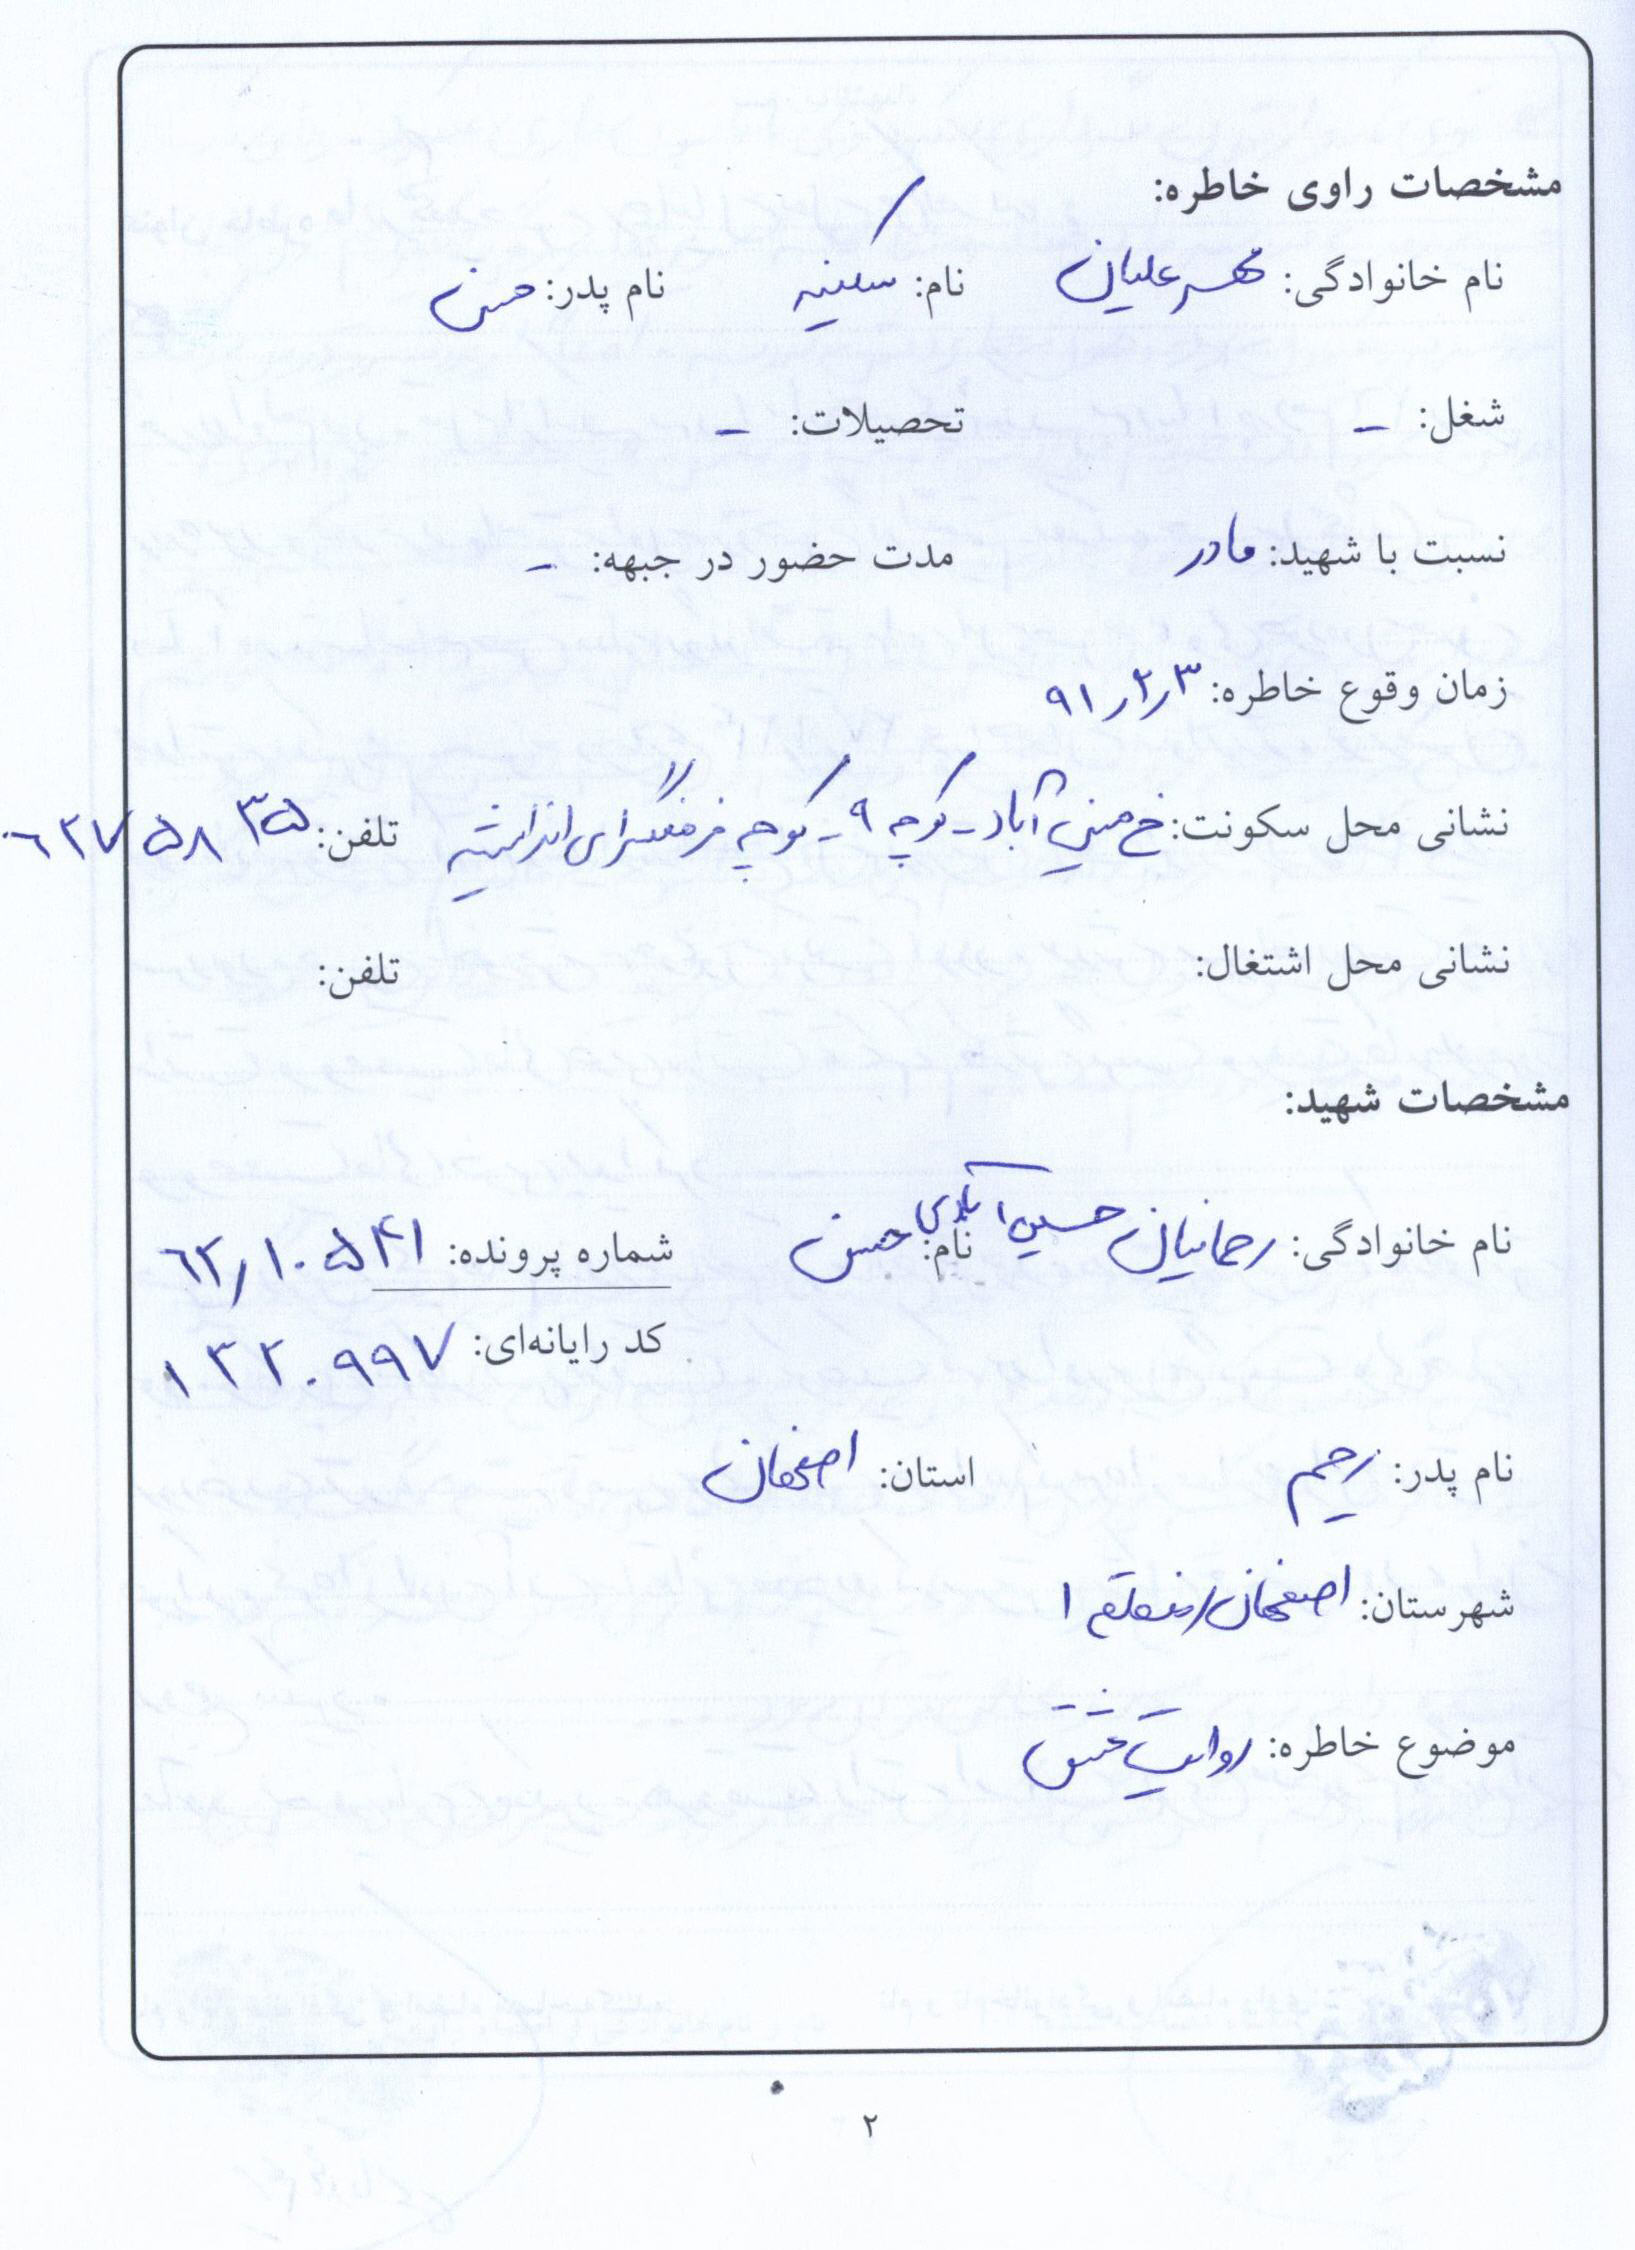 مشخصات راوی خاطره:
نام خانوادگی: مهرعلیان نام: سکینه نام پدر: حسن
شغل: – تحصیلات: –
نسبت با شهید: مادر مدت حضور در جبهه: –
زمان وقوع خاطره: ۹۱٫۲٫۳
نشانی محل سکونت: خ آباد - کوچه ۹ - کوچه فرهنگسرای اندیشه تلفن:
نشانی محل اشتغال: تلفن:
مشخصات شهید:
نام خانوادگی: رحمانیان حسین آبادی نام: حسن شماره پرونده: ۶۲٫۱۰۵۴۱
کد رایانه‌ای: ۱۳۲۰۹۹۷
نام پدر: رحیم استان: اصفهان
شهرستان: اصفهان/منطقه ۱
موضوع خاطره: روایت عشق
۲